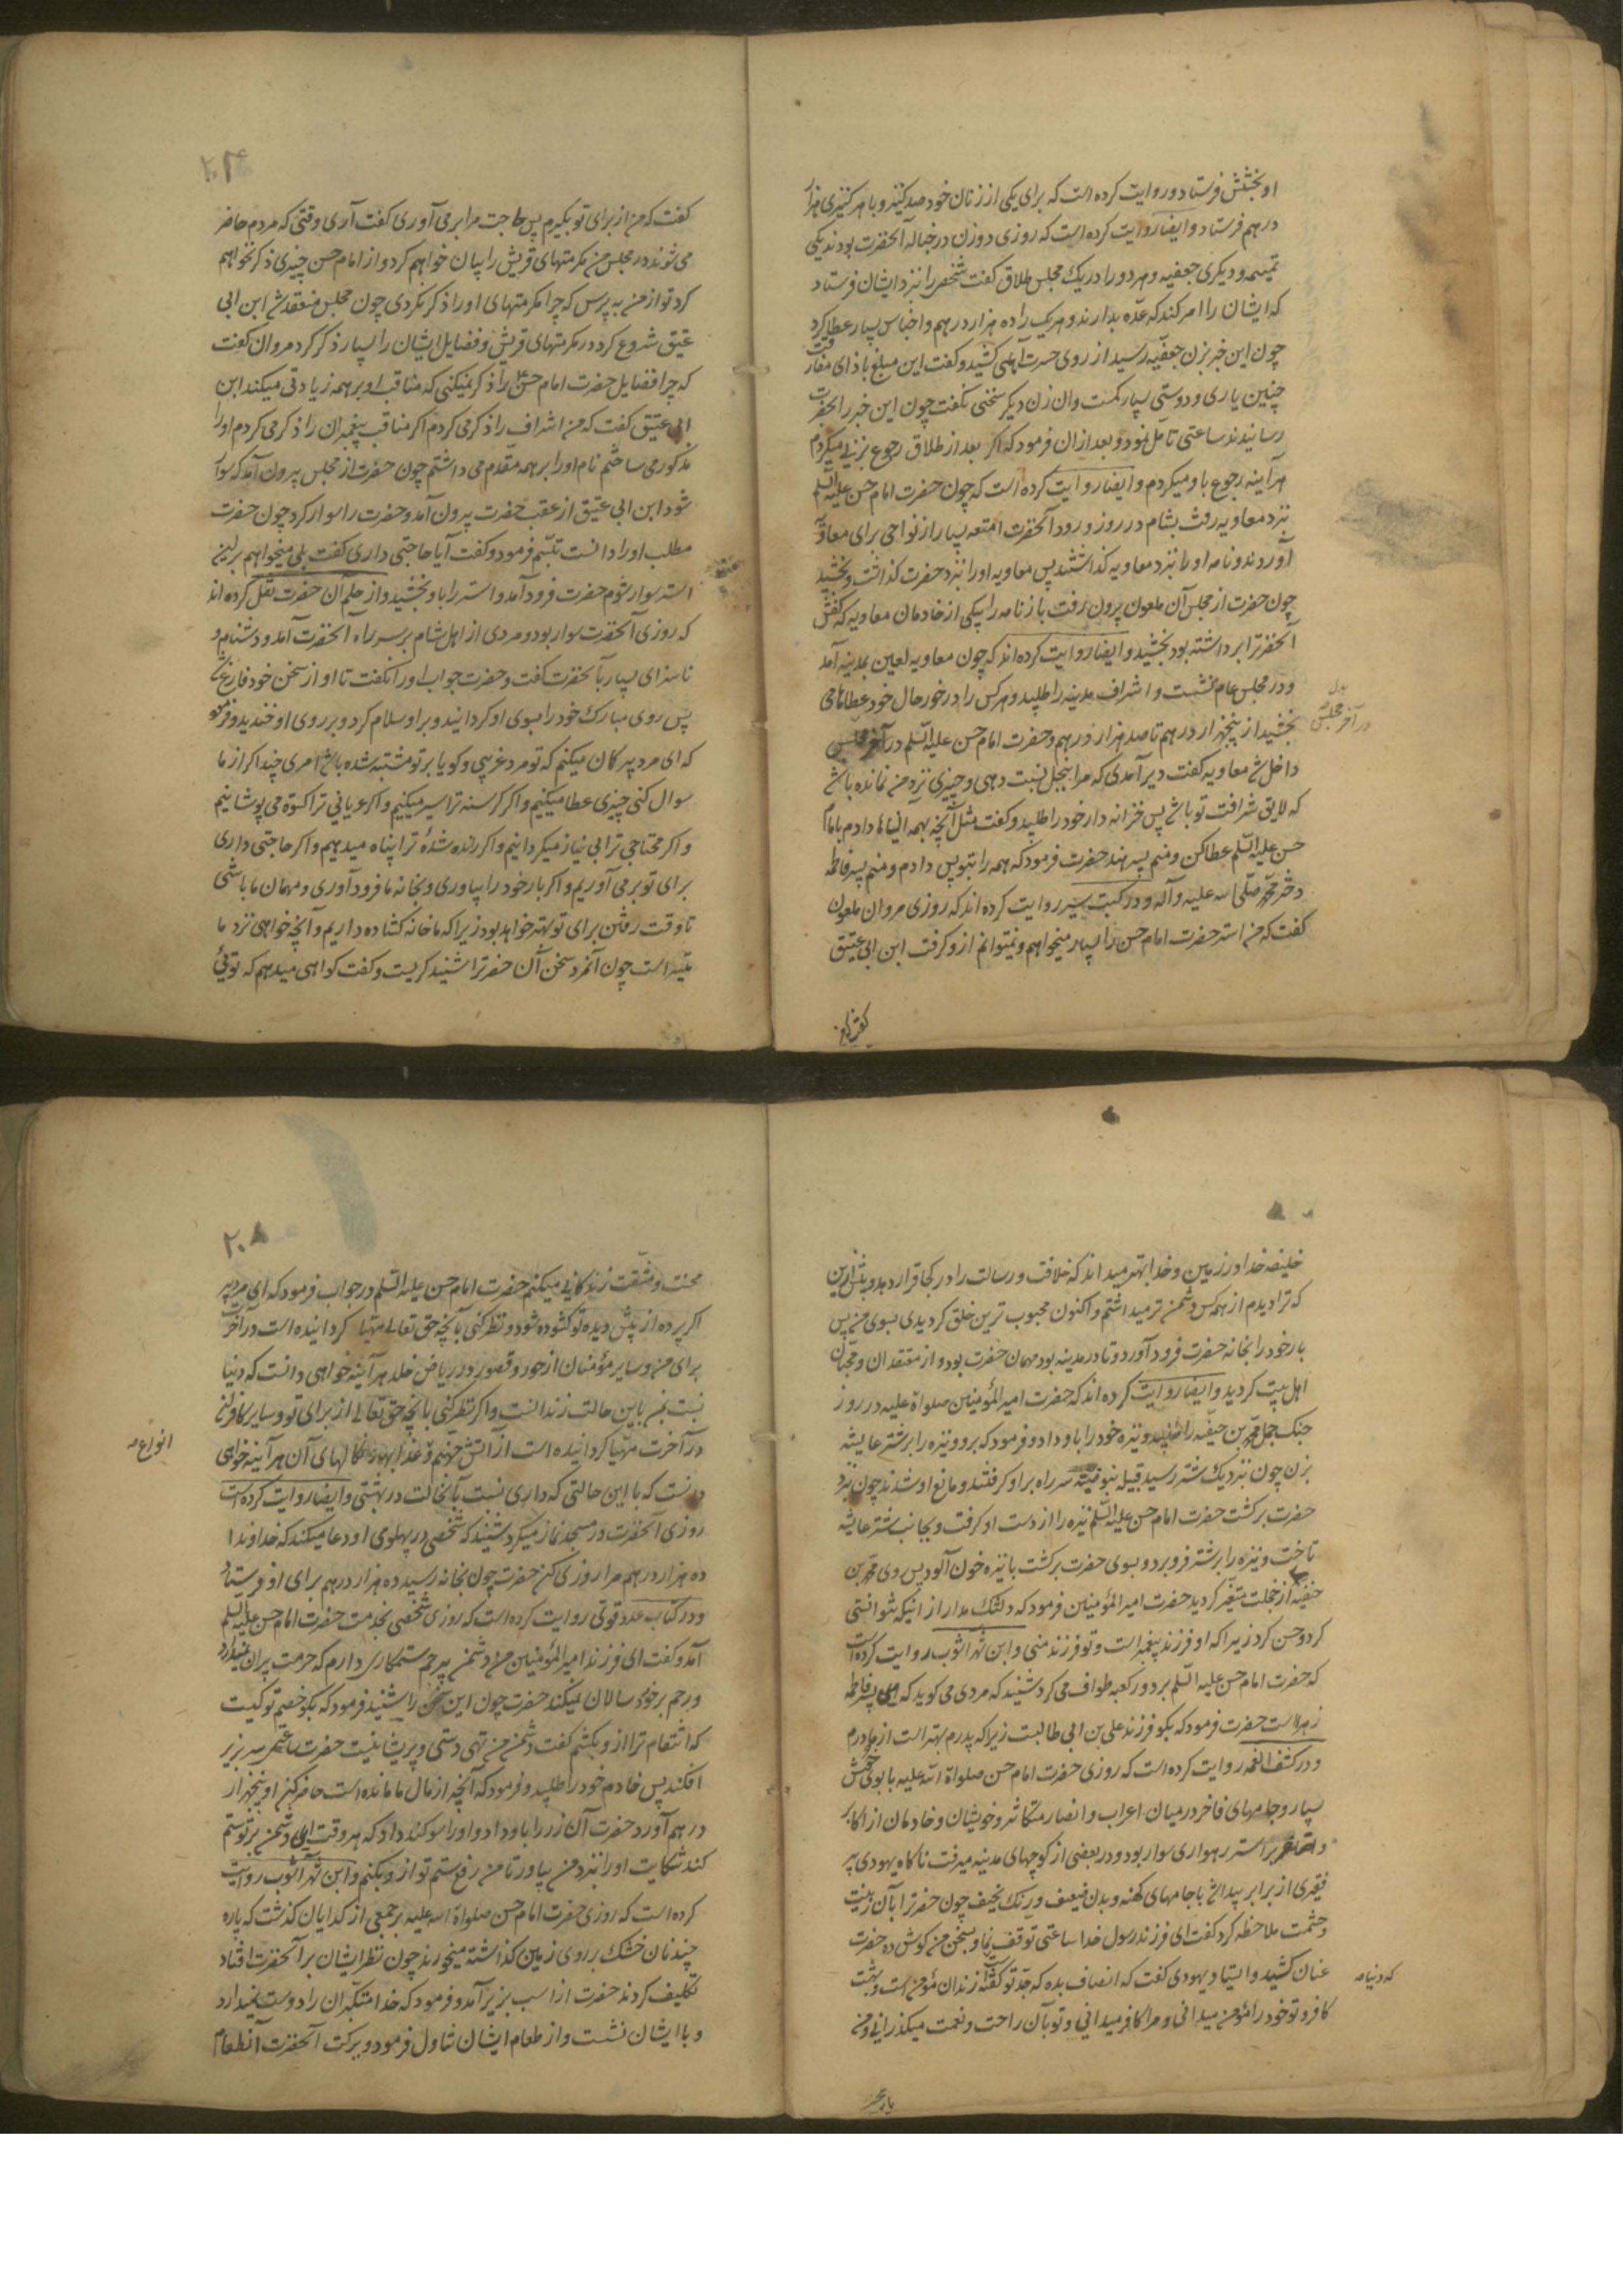 او بخشش فرستاد و روایت کرده است که برای یکی از زنان خود صد کنیز و با هر کنیزی هزار
درهم فرستاد و ایضا روایت کرده است که روزی دو زن در حباله آنحضرت بودند یکی
تمیمیه و دیگری جعفیه و هر دو را در یک مجلس طلاق گفت شخصی را نزد ایشان فرستاد
که ایشان را امر کند که عده بدارند و هر یک را ده هزار درهم و اجناس بسیار عطا کرد
چون این خبر بزن جعفیه رسید از روی حسرت آهی کشید و گفت این مبلغ بازای مفارقت
چنین یاری و دوستی بسیار کمست و ان زن دیگر سخنی نگفت چون این خبر را بحضرت
رسانیدند ساعتی تامل نمود و بعد ازان فرمود که اگر بعد از طلاق رجوع بزنی میکردم
هر آینه رجوع باو میکردم و ایضا روایت کرده است که چون حضرت امام حسن علیه السلم
نزد معاویه رفت بشام در روز ورود آنحضرت امتعه بسیار از نواحی برای معاویه
آوردند و نامه او را نزد معاویه گذاشتند پس معاویه او را نزد حضرت گذاشت و بخشید
چون حضرت از مجلس آن ملعون بیرون رفت باز نامه را بیکی از خادمان معاویه که کفش
آنحضرترا برداشته بود بخشید و ایضا روایت کرده اند که چون معاویه لعین بمدینه آمد
و در مجلس عام نشست و اشراف مدینه را طلبید و هر کس را در خور حال خود عطاها می
بخشید از پنجهزار درهم تا صد هزار درهم و حضرت امام حسن علیه السلم در آخر مجلس
در آخر مجلس بدل
داخل شد معاویه گفت دیر آمدی که مرا ببخل نسبت دهی و چیزی نزد من نمانده باشد
که لایق شرافت تو باشد پس خزانه دار خود را طلبید و گفت مثل آنچه بهمه آنها دادم بامام
حسن علیه السلم عطا کن و منم پسر هند حضرت فرمود که همه را بتو پس دادم و منم پسر فاطمه
دختر محمد صلی الله علیه و آله و در کتب سیر روایت کرده اند که روزی مروان ملعون
گفت که من استر حضرت امام حسن را بسیار میخواهم و نمیتوانم ازو گرفت ابن ابی عتیق
گفت که من
گفت که من از برای تو بگیرم پس حاجت مرا بر می آوری گفت آری وقتی که مردم حاضر
می شوند در مجلس من مکرمتهای قریش را بیان خواهم کرد و از امام حسن چیزی ذکر نخواهم
کرد تو از من به پرس که چرا مکرمتهای او را ذکر نکردی چون مجلس منعقد شد ابن ابی
عتیق شروع کرد در مکرمتهای قریش و فضایل ایشان را بسیار ذکر کرد مروان گفت
که چرا فضایل حضرت امام حسن را ذکر نمیکنی که مناقب او بر همه زیادتی میکند ابن
ابی عتیق گفت که من اشراف را ذکر می کردم اگر مناقب پیغمبران را ذکر می کردم او را
مذکور می ساختم نام او را بر همه مقدم می داشتم چون حضرت از مجلس بیرون آمد که سوار
شود ابن ابی عتیق از عقب حضرت بیرون آمد و حضرت را سوار کرد چون حضرت
مطلب او را دانست تبسم فرمود و گفت آیا حاجتی داری گفت بلی میخواهم بر این
استر سوار شوم حضرت فرود آمد و استر را باو بخشید و از حلم آن حضرت نقل کرده اند
که روزی آنحضرت سوار بود و مردی از اهل شام بر سر راه آنحضرت آمد و دشنام و
ناسزای بسیار بآنحضرت گفت و حضرت جواب او را نگفت تا او از سخن خود فارغ شد
پس روی مبارک خود را بسوی او گردانید و بر او سلام کرد و بر روی او خندید و فرمود
که ای مرد پیر گمان میکنم که تو مرد غریبی و گویا بر تو مشتبه شده باشد امری چند اگر از ما
سوال کنی چیزی عطا میکنیم و اگر گرسنه ترا سیر میکنیم و اگر عریانی ترا کسوه می پوشانیم
و اگر محتاجی ترا بی نیاز میگردانیم و اگر رانده شدۀ ترا پناه میدهیم و اگر حاجتی داری
برای تو بر می آوریم و اگر بار خود را بیاوری و بخانه ما فرود آوری و مهمان ما باشی
تا وقت رفتن برای تو بهتر خواهد بود زیرا که ما خانه گشاده داریم و آنچه خواهی نزد ما
میسر است چون آنمرد سخن آن حضرترا شنید گریست و گفت گواهی میدهم که توئی
خلیفه خدا در زمین و خدا بهتر میداند که خلافت و رسالت را در کجا قرار دهد و پیش ازین
که ترا دیدم از همه کس دشمن تر میداشتم و اکنون محبوب ترین خلق گردیدی بسوی من پس
بار خود را بخانه حضرت فرود آورد و تا در مدینه بود مهمان حضرت بود و از معتقدان و محبان
اهل بیت گردید و ایضا روایت کرده اند که حضرت امیر المؤمنین صلواة علیه در روز
جنک جمل محمد بن حنفیه را طلبید و نیزه خود را باو داد و فرمود که برو و نیزه را بر شتر عایشه
بزن چون نزدیک شتر رسید قبیله بنوضبه سر راه بر او گرفتند و مانع او شدند چون نزد
حضرت برگشت حضرت امام حسن علیه السلم نیزه را از دست او گرفت و بجانب شتر عایشه
تاخت و نیزه را بر شتر فرو برد و بسوی حضرت برگشت با نیزه خون آلود پس روی محمد بن
حنفیه از خجلت متغیر گردید حضرت امیر المؤمنین فرمود که دلتنک مدار از اینکه نتوانستی
کرد و حسن کرد زیرا که او فرزند پیغمبر است و تو فرزند منی و ابن شهر اشوب روایت کرده است
که حضرت امام حسن علیه السلم بر دور کعبه طواف می کرد شنید که مردی می گوید که این پسر فاطمه
زهراست حضرت فرمود که بگو فرزند علی بن ابی طالبست زیرا که پدرم بهتر است از مادرم
و در کشف الغمه روایت کرده است که روزی حضرت امام حسن صلواة الله علیه با بوی خوش
بسیار و جامهای فاخر در میان اعراب و انصار متکاثر و خویشان و خادمان از اکابر
و اصاغر بر استر رهواری سوار بود و در بعضی از کوچهای مدینه میرفت ناگاه یهودی پیر
فقیری از برابر پیدا شد با جامهای کهنه و بدن ضعیف و رنک نحیف چون حضرترا بآن زینت
و حشمت ملاحظه کرد گفت ای فرزند رسول خدا ساعتی توقف نما و بسخن من گوش ده حضرت
عنان کشید و ایستاد یهودی گفت که انصاف بده که جد تو گفته است زندان مؤمن است و بهشت
که دنیا
کافر و تو خود را مؤمن میدانی و مرا کافر میدانی و تو بآن راحت و نعمت میگذرانی و من
۲۰۸
محنت و مشقت زندگانی میکنم حضرت امام حسن علیه السلم در جواب فرمود که ای مرد پیر
اگر پرده از پیش دیده تو گشوده شود و نظر کنی بآنچه حق تعالی مهیا گردانیده است در آخرت
برای من و سایر مؤمنان از حور و قصور در ریاض خلد هر آینه خواهی دانست که دنیا
نسبت بمن باین حالت زندانست و اگر نظر کنی بآنچه حق تعالی از برای تو و سایر کافران
در آخرت مهیا گردانیده است از آتش جهنم و عذابها و نکالهای آن هر آینه خواهی
انواع
دانست که با این حالتی که داری نسبت بآنحالت در بهشتی و ایضا روایت کرده است
روزی آنحضرت در مسجد نماز میکرد شنید که شخصی در پهلوی او دعا میکند که خداوندا
ده هزار درهم مرا روزی کن حضرت چون بخانه رسید ده هزار درهم برای او فرستاد
و در کتاب عدد قوتی روایت کرده است که روزی شخصی بخدمت حضرت امام حسن علیه السلم
آمد و گفت ای فرزند امیر المؤمنین مرا دشمن بیرحم ستمکاری دارم که حرمت پیران نمیدارد
و رحم بر خورد سالان نمیکند حضرت چون این سخن را شنید فرمود که بگو خصم تو کیست
که انتقام ترا ازو بکشم گفت دشمن من تهی دستی و پریشانیست حضرت ساعتی سر بزیر
افکند پس خادم خود را طلبید و فرمود که آنچه از مال ما مانده است حاضر کن او پنجهزار
درهم آورد حضرت آن زر را باو داد و او را سوگند داد که هر وقت این دشمن بر تو ستم
کند شکایت او را نزد من بیاور تا من رفع ستم تو ازو بکنم و ابن شهر اشوب روایت
کرده است که روزی حضرت امام حسن صلواة الله علیه بر جمعی از گدایان گذشت که پاره
چند نان خشک بر روی زمین گذاشته میخورند چون نظر ایشان بر آنحضرت افتاد
تکلیف کردند حضرت از اسب بزیر آمد و فرمود که خدا متکبران را دوست نمیدارد
و با ایشان نشست و از طعام ایشان تناول فرمود و ببرکت آنحضرت آنطعام